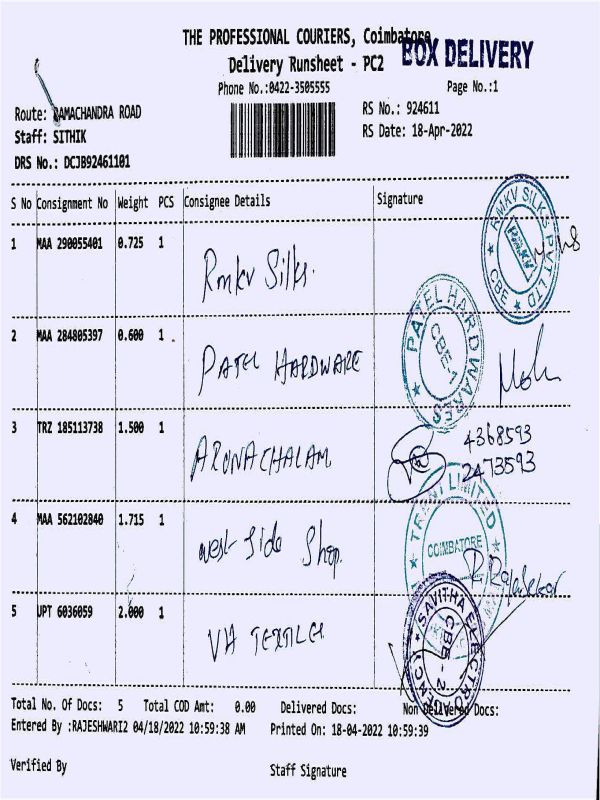 THE PROFESSIONAL COURIERS, Coimbatore
BOX DELIVERY
Delivery Runsheet - PC2
Phone No.:0422-3505555
Page No.:1
Route: RAMACHANDRA ROAD
RS No.: 924611
Staff: SITHIK
RS Date: 18-Apr-2022
DRS No.: DCJB92461101
S No Consignment No Weight PCS Consignee Details Signature
1 MAA 290055401 0.725 1 Rmkv Silks.
RMKV SILKS PVT LTD CBE
RmKV
2 MAA 284805397 0.600 1 PATEL HARDWARE
PATEL HARDWARES
CBE-1
3 TRZ 185113738 1.500 1 ARUNACHALAM 4368593
2473593
4 MAA 562102840 1.715 1 west side Shop.
TRENT LIMITED
COIMBATORE
R. Rajasekar
5 UPT 6036059 2.000 1 VH TEXTILES
SAVITHA ELECTRO AGENCY
CBE-2
Total No. Of Docs: 5 Total COD Amt: 0.00 Delivered Docs: Non Delivered Docs:
Entered By :RAJESHWARI2 04/18/2022 10:59:38 AM Printed On: 18-04-2022 10:59:39
Verified By Staff Signature